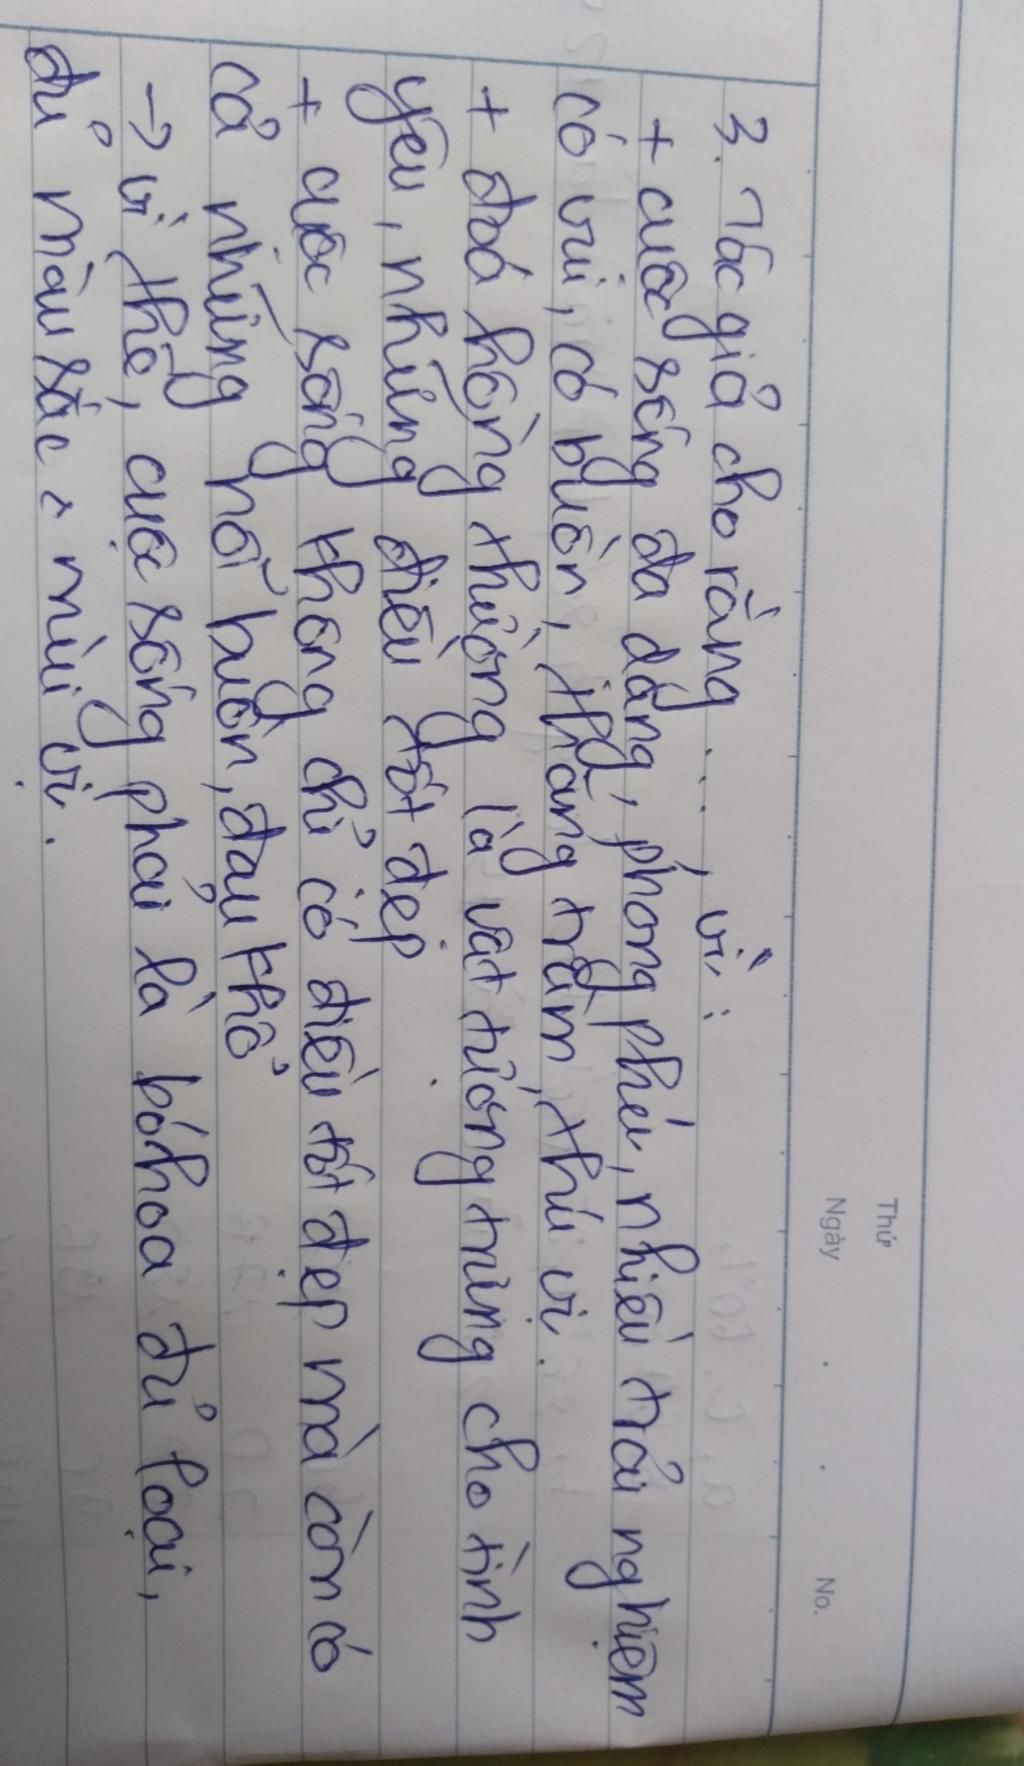 Thứ
Ngày . . No.
3. Tác giả cho rằng ...., vì:
+ cuộc sống đa dạng, phong phú, nhiều trải nghiệm
có vui, có buồn, thăng trầm, thú vị.
+ đoá hồng thường là vật tượng trưng cho tình
yêu, những điều tốt đẹp.
+ cuộc sống không chỉ có điều tốt đẹp mà còn có
cả những nỗi buồn, đau khổ
→ vì thế, cuộc sống phải là bó hoa đủ loại,
đủ màu sắc, mùi vị.